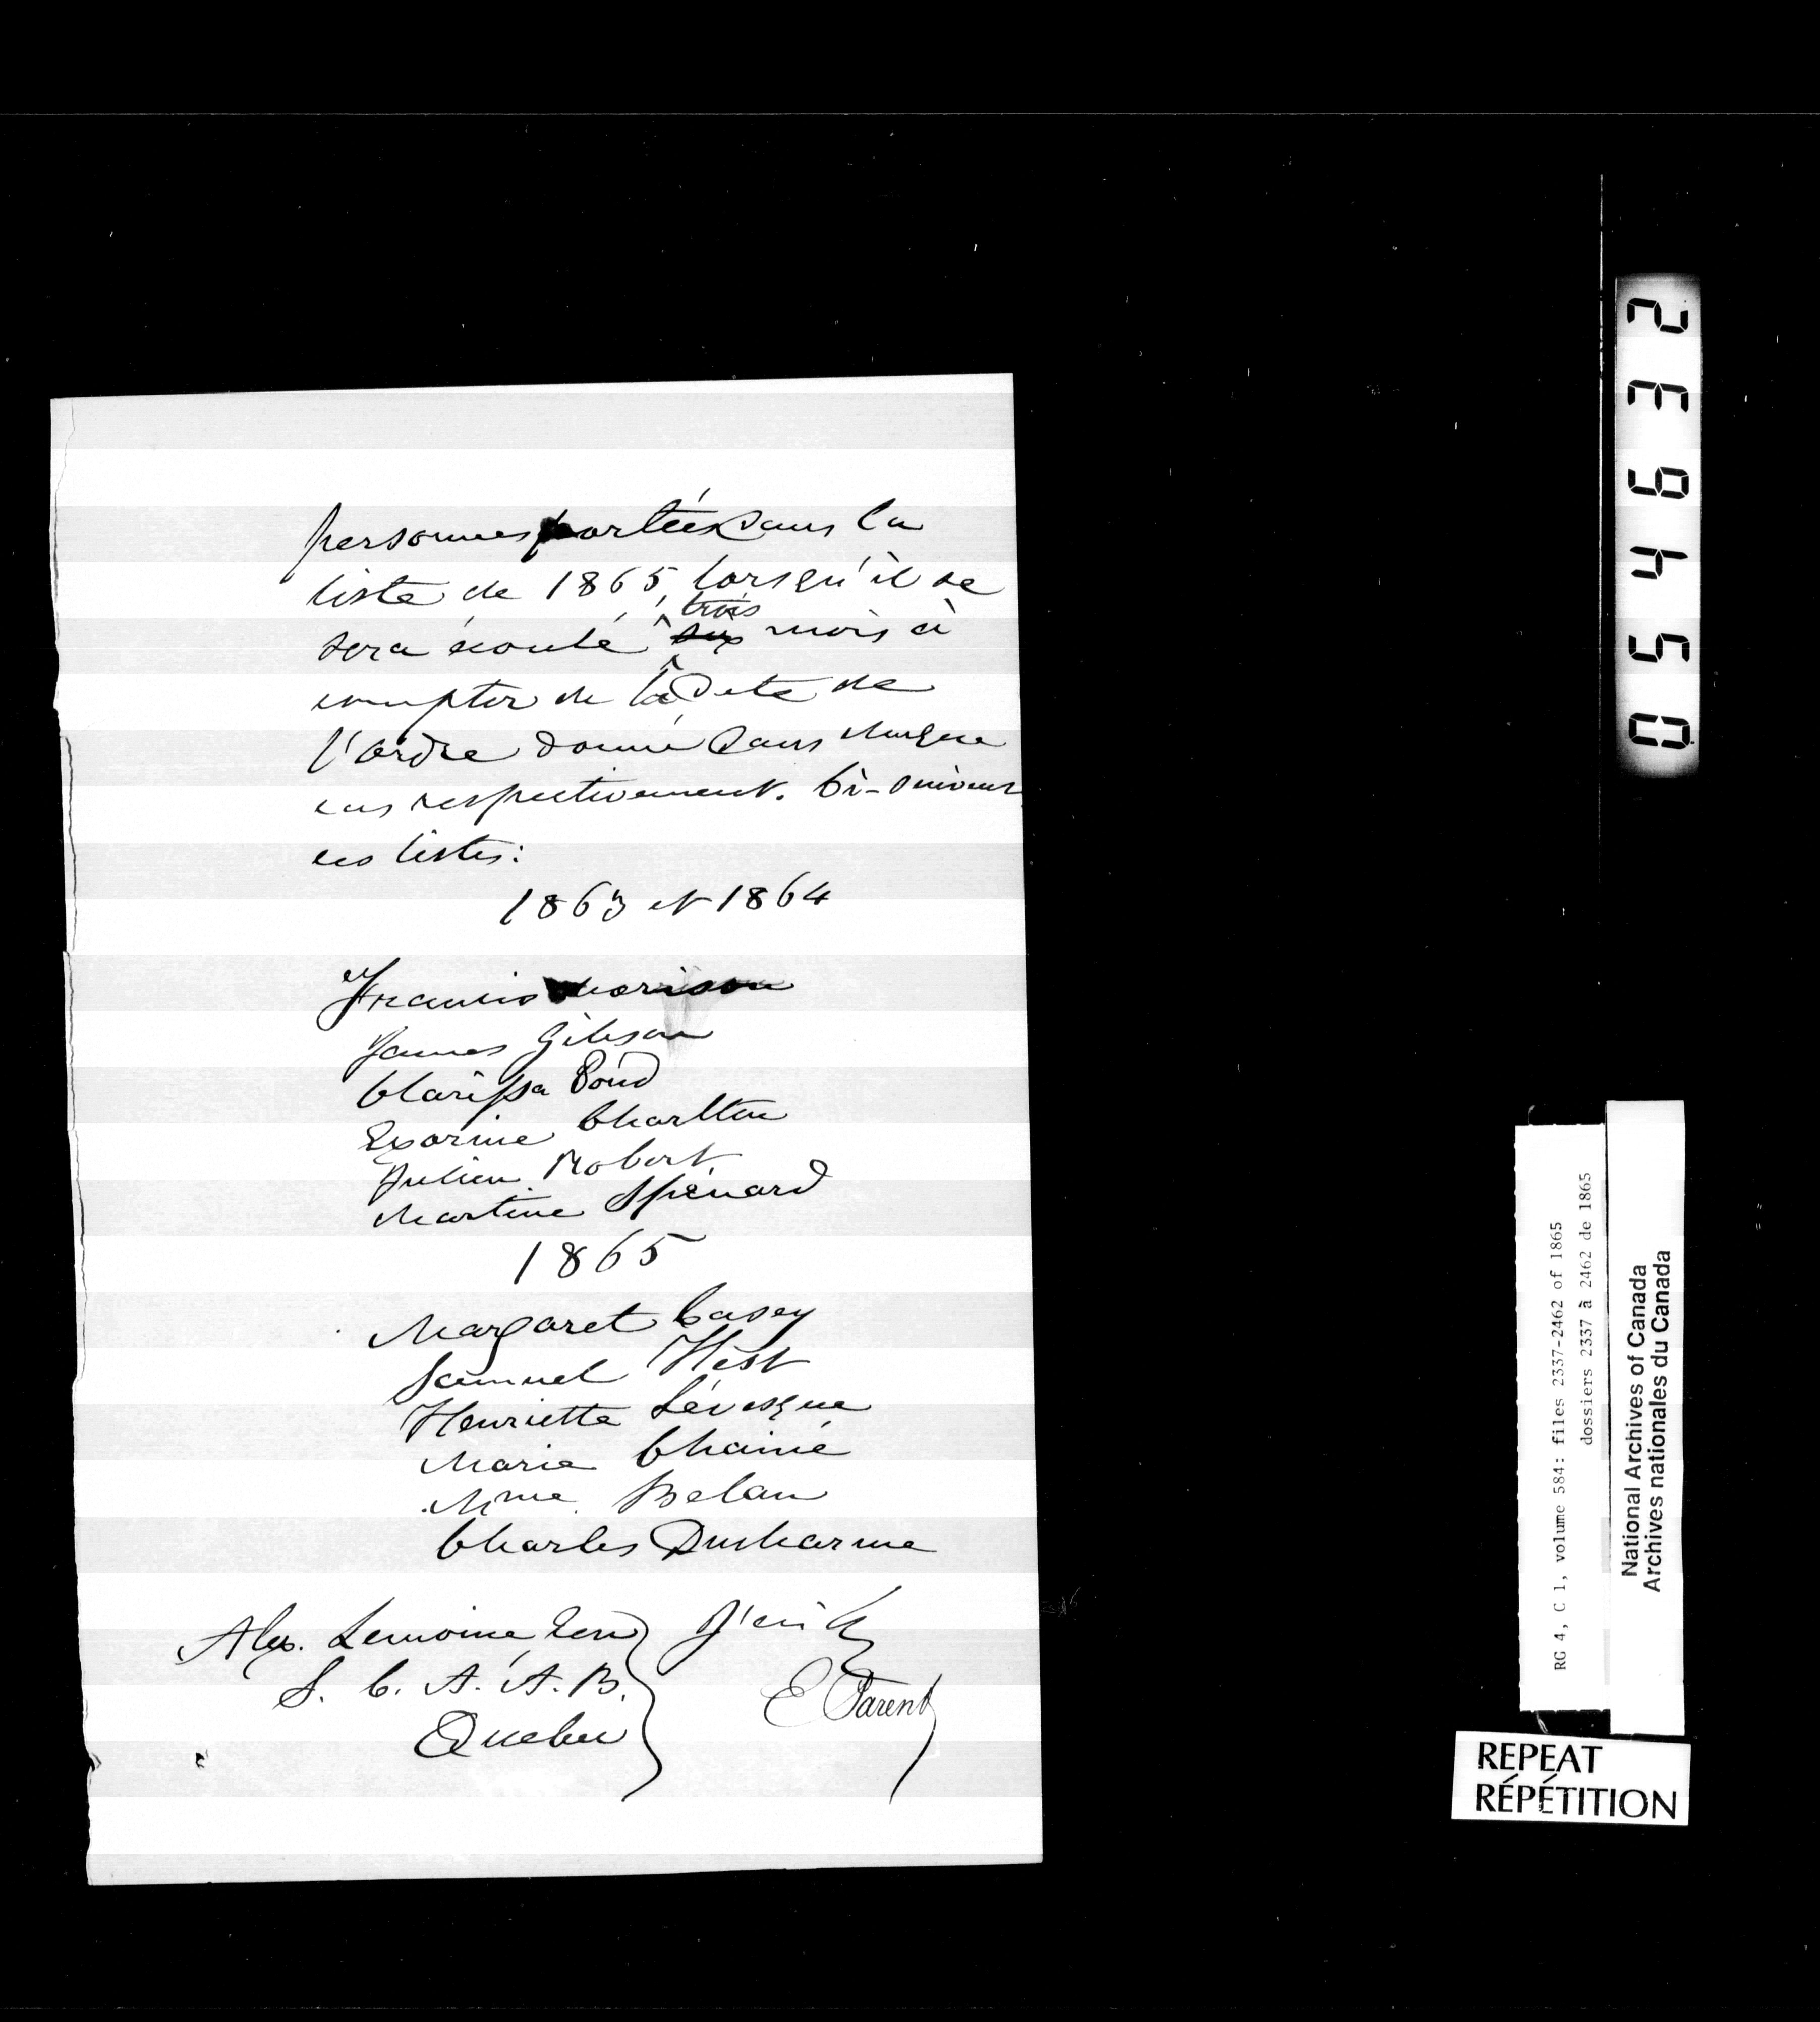 personnes portées dans la
liste de 1865, lorsqu'il se
sera écoulé trois six mois à
compter de la date de
l'ordre donné dans chaque
cas respectivement. Ci-suivent
ces listes:
1863 et 1864
Francis Morison
James Gibson
Clarissa Pond
Exorine Charlton
Julien Robert
Martine Spénard
1865
Margaret Casey
Samuel West
Henriette Lévesque
Marie Chainé
Mme Belan
Charles Ducharme
Alex. Lemoine J'ai
S. C. A. A. B.
E Parent
Quebec
054632
RG 4, C 1, volume 584: files 2337-2462 of 1865
dossiers 2337 à 2462 de 1865
National Archives of Canada
Archives nationales du Canada
REPEAT
RÉPÉTITION